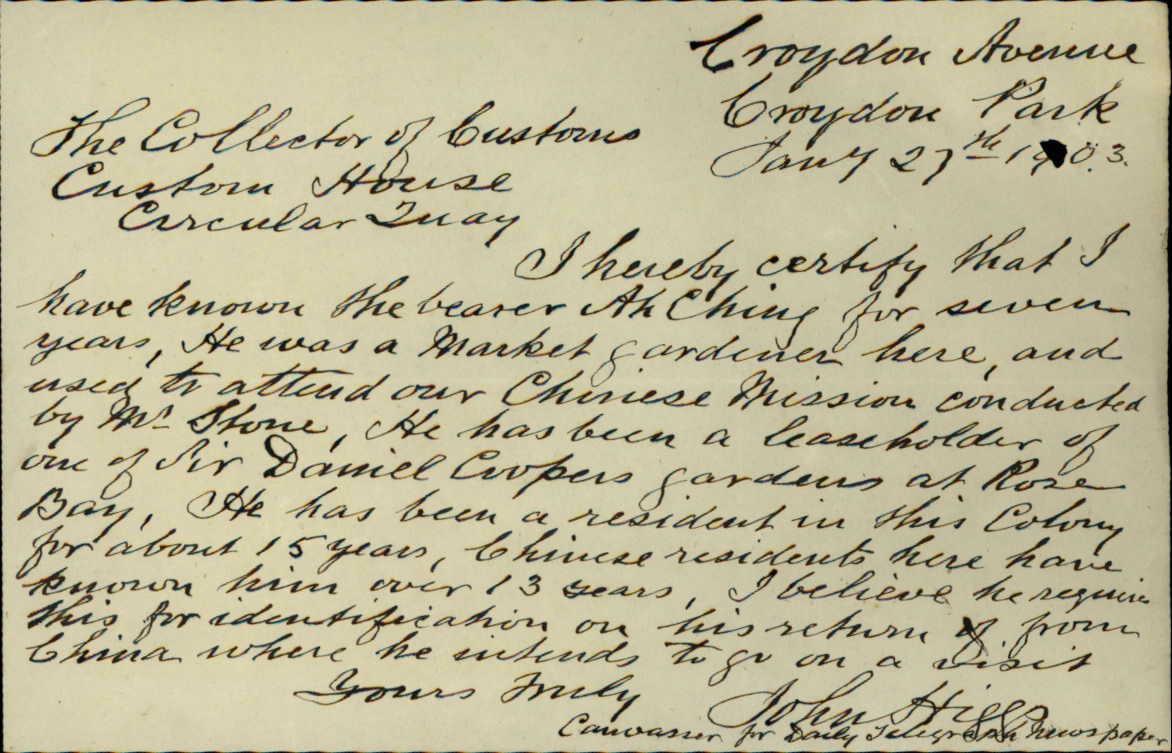 Croydon Avenue
Croydon Park
Jany 27th 1903.
The Collector of Customs
Custom House
Circular Quay
I hereby certify that I
have known the bearer Ah Ching for seven
years, He was a Market gardener here, and
used to attend our Chinese Mission conducted
by Mr Stone, He has been a leaseholder of
one of Sir Daniel Coopers gardens at Rose
Bay, He has been a resident in this Colony
for about 15 years, Chinese residents here have
known him over 13 years, I believe he require
this for identification on his return from
China where he intends to go on a visit
Yours truly
John Higgs
Canvasser for Daily Telegraph Newspaper